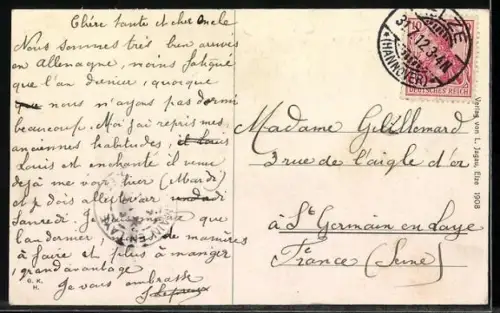 Chère tante et cher Oncle
Nous sommes très bien arrivés
en Allemagne, moins fatigué
que l'an dernier, quoique
nous n'ayons pas dormi
beaucoup. Moi j'ai repris mes
anciennes habitudes,
Louis est enchanté il
déjà me voir tier (Mardi)
et je dois aller
Samedi. Je que
l'an dernier, de manières
à faire et plus à manger,
grand avantage
Je vous embrasse
G. K.
H.
ELZE
31. 12. 3-4N
*(HANNOVER)
DEUTSCHES REICH
Madame Gillemard
3 rue de l'aigle d'or
à St Germain en Laye
France (Seine)
Verlag von L. Jagau, Elze 1908